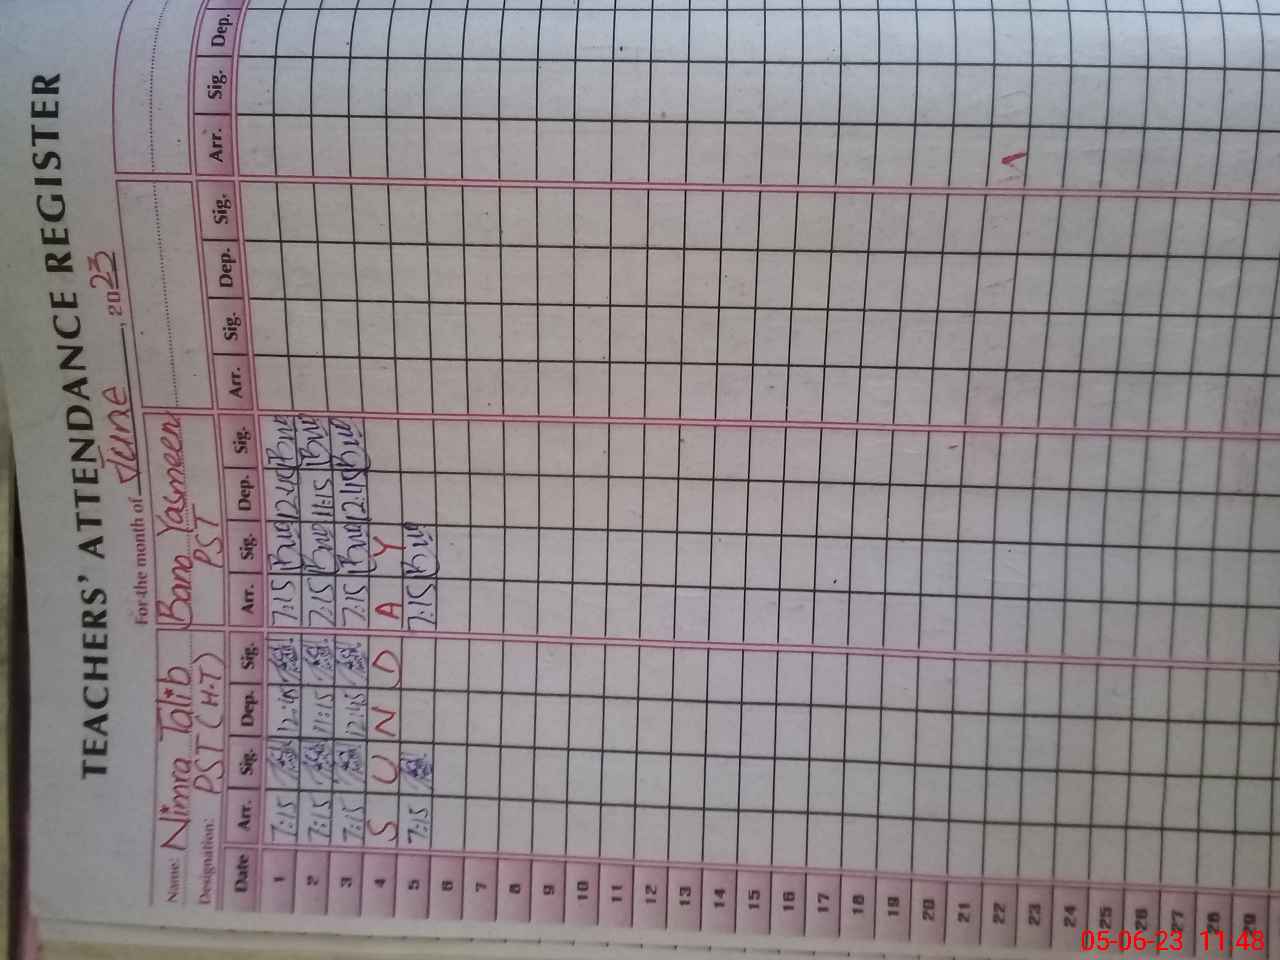 TEACHERS' ATTENDANCE REGISTER
For the month of June, 2023
Name: Nimra Talib Bano Yasmeen
Designation: PST (H.T) PST
Date Arr. Sig. Dep. Sig. Arr. Sig. Dep. Sig. Arr. Sig. Dep. Sig. Arr. Sig. Dep.
1 7:15 12:45 7:15 12:45
2 7:15 11:15 7:15 11:15
3 7:15 12:45 7:15 12:45
4 S U N D A Y
5 7:15 7:15
6
7
8
9
10
11
12
13
14
15
16
17
18
19
20
21
22
23
24
25
26
27
28
29
05-06-23 11:48